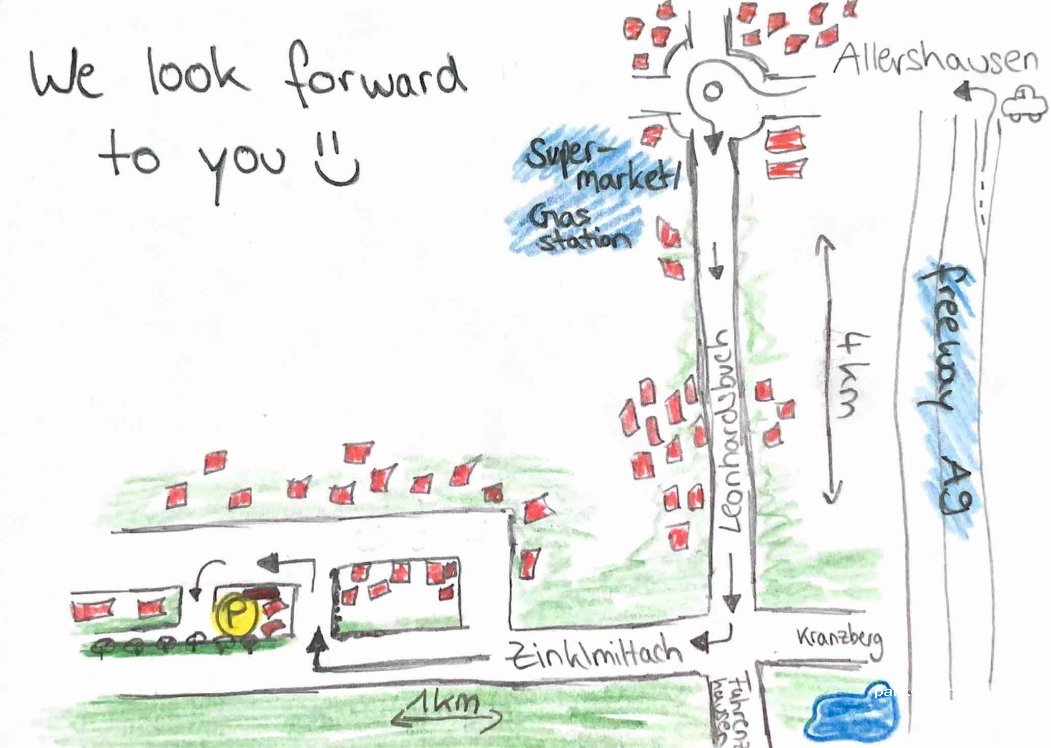 We look forward
to you
Allershausen
Super-
market/
Gas
station
4km
freeway A9
Leonhardsbuch
P
Zinklmittach
Kranzberg
1km